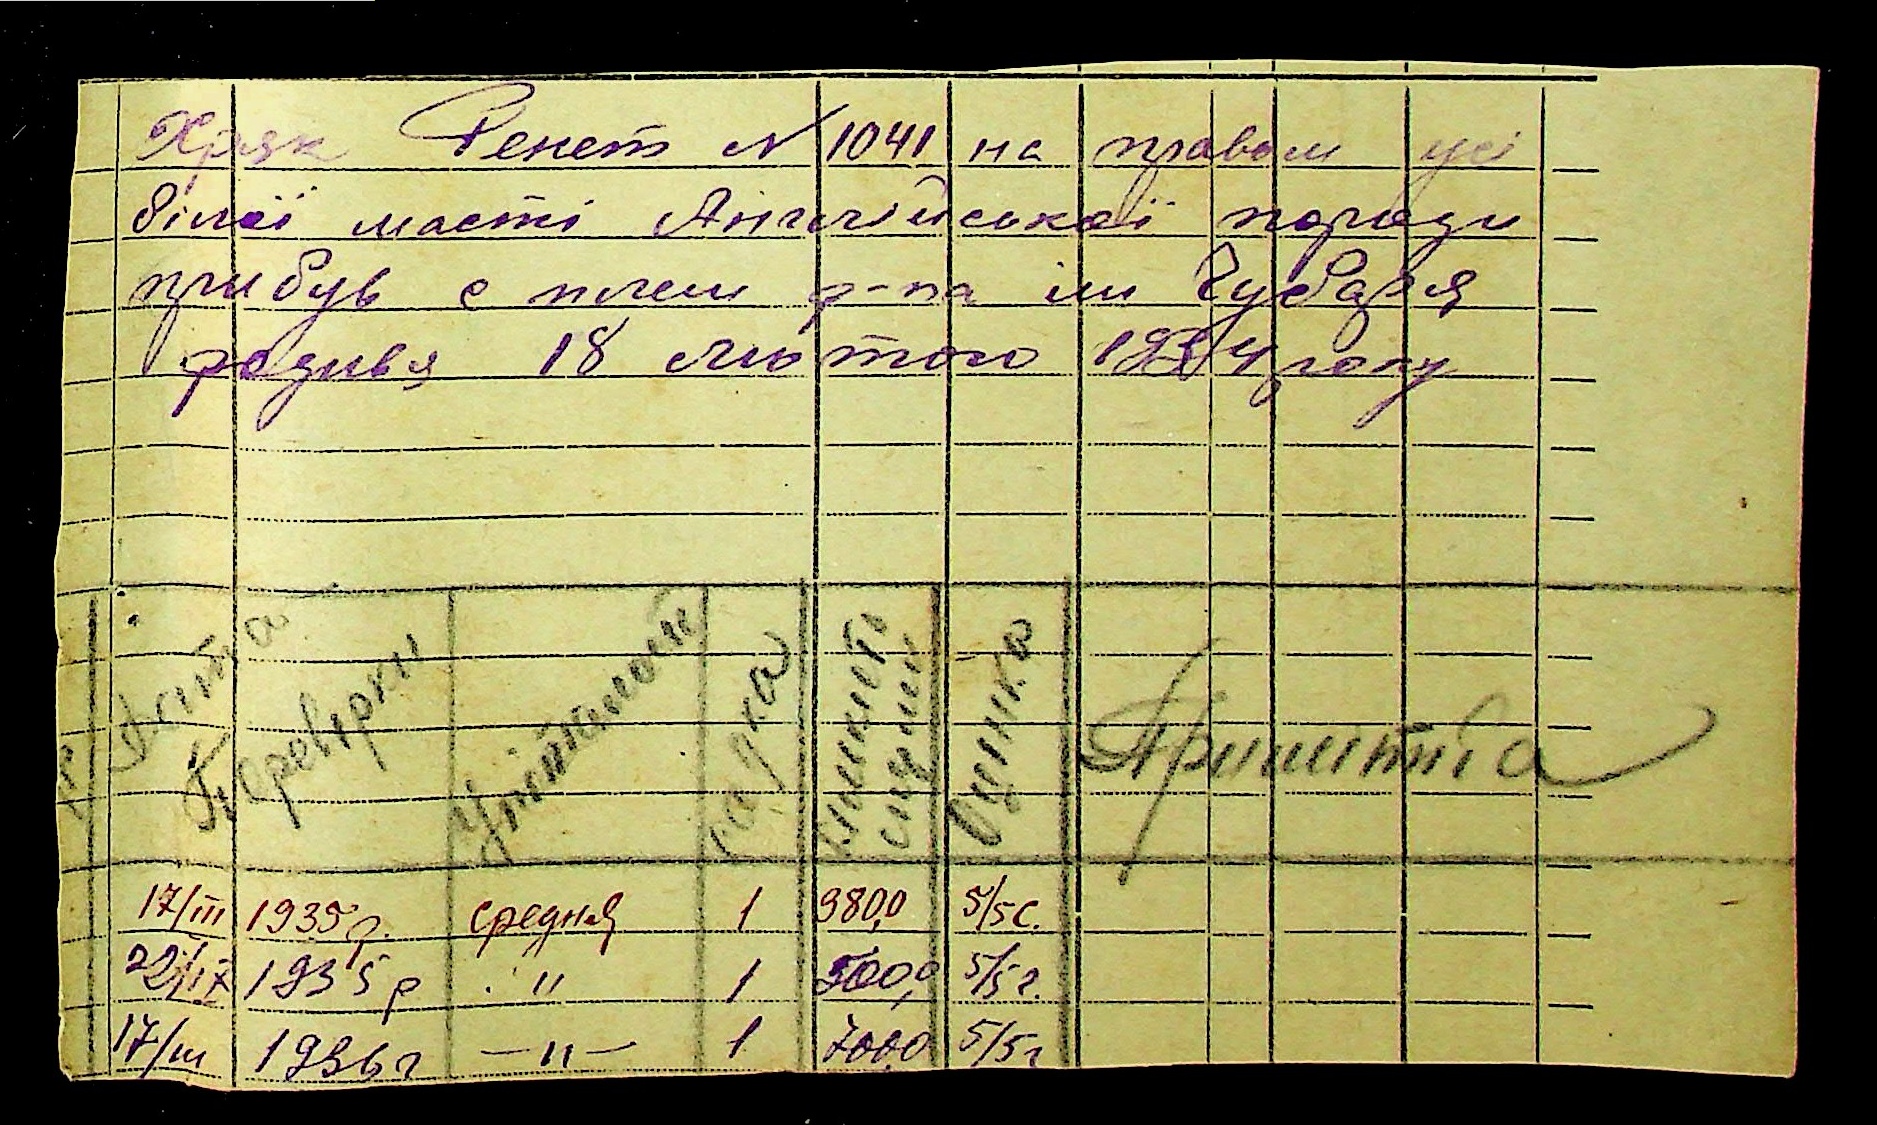 Хряк Ренет № 1041 на правом усі
білої масті Англійської породи
прибув с плем р-па ім Чубаря
родивя 18 Лютого 1934 року
Дата Перевірки Упітаност садка Оцинка Примитка
17/III 1935 р. средняя 1 980,0 5/5 с.
22/IX 1935 р " 1 500,0 5/5 г.
17/III 1936 г —"— 1 700,0 5/5 г